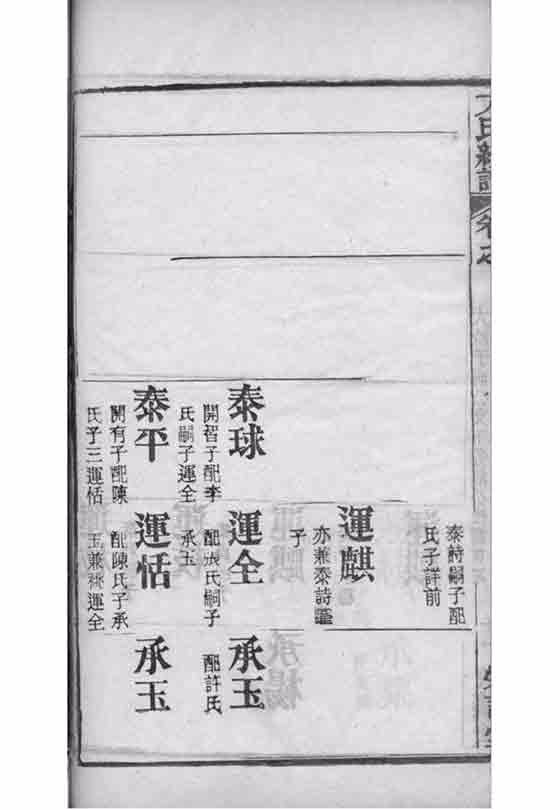 氏
卷之
泰詩嗣子配
氏子詳前
運麒
亦兼泰詩
子
泰球
開智子配李
氏嗣子運全
運全
配張氏嗣子
承玉
承玉
配許氏
泰平
開有子配陳
氏子三運恬
運恬
配陳氏子承
玉兼祧運全
承玉